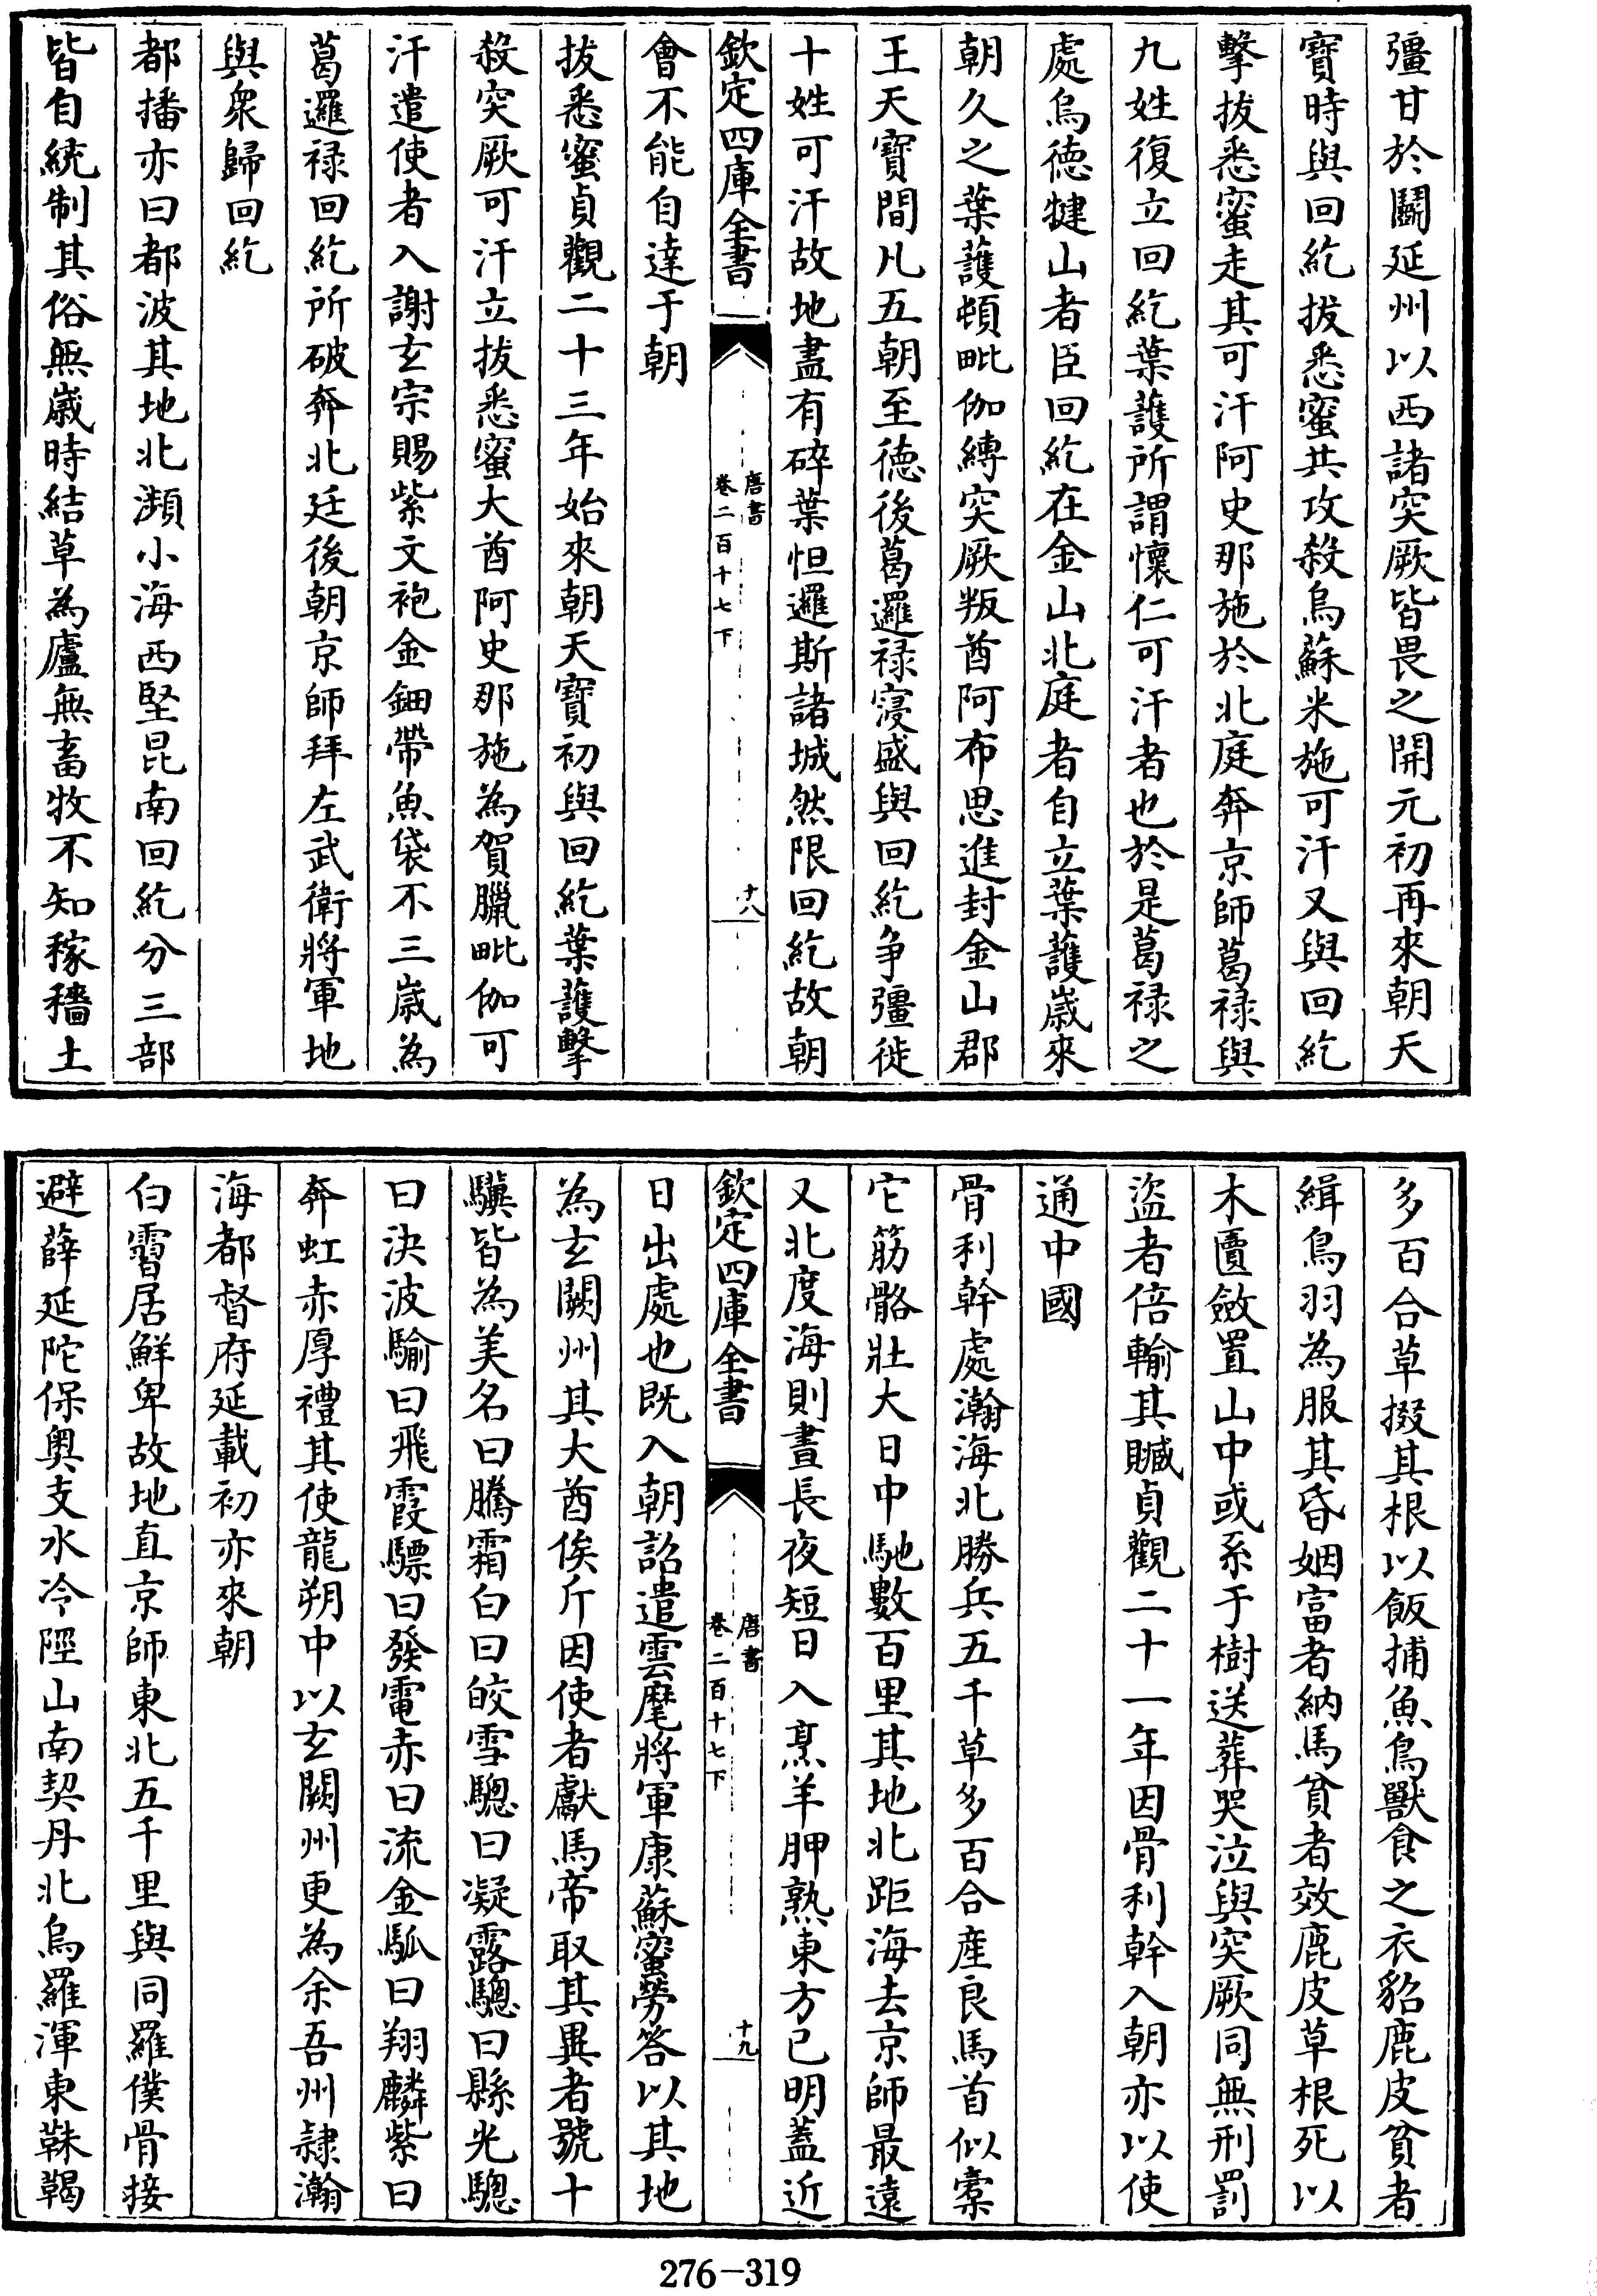 彊甘於鬭延州以西諸突厥皆畏之開元初再來朝天
寶時與回紇拔悉蜜共攻殺烏蘇米施可汗又與回紇
擊拔悉蜜走其可汗阿史那施於北庭奔京師葛禄與
九姓復立回紇葉護所謂懷仁可汗者也於是葛禄之
處烏德犍山者臣回紇在金山北庭者自立葉護歲來
朝久之葉護頓毗伽縛突厥叛酋阿布思進封金山郡
王天寶間凡五朝至德後葛邏禄寖盛與回紇争彊徙
十姓可汗故地盡有碎葉怛邏斯諸城然限回紇故朝
欽定四庫全書
唐書
卷二百十七下
十八
會不能自達于朝
拔悉蜜貞觀二十三年始來朝天寶初與回紇葉護擊
殺突厥可汗立拔悉蜜大酋阿史那施為賀臘毗伽可
汗遣使者入謝玄宗賜紫文袍金鈿帶魚袋不三歲為
葛邏禄回紇所破奔北廷後朝京師拜左武衛將軍地
與衆歸回紇
都播亦曰都波其地北瀕小海西堅昆南回紇分三部
皆自統制其俗無歲時結草為廬無畜牧不知稼穡土
多百合草掇其根以飯捕魚鳥獸食之衣貂鹿皮貧者
緝鳥羽為服其昏姻富者納馬貧者效鹿皮草根死以
木匱斂置山中或系于樹送葬哭泣與突厥同無刑罰
盜者倍輸其贓貞觀二十一年因骨利幹入朝亦以使
通中國
骨利幹處瀚海北勝兵五千草多百合産良馬首似橐
它筋骼壯大日中馳數百里其地北距海去京師最遠
又北度海則晝長夜短日入烹羊胛熟東方已明蓋近
欽定四庫全書
唐書
卷二百十七下
十九
日出處也既入朝詔遣雲麾將軍康蘇蜜勞答以其地
為玄闕州其大酋俟斤因使者獻馬帝取其異者號十
驥皆為美名曰騰霜白曰皎雪驄曰凝露驄曰縣光驄
曰決波騟曰飛霞驃曰發電赤曰流金䯄曰翔麟紫曰
奔虹赤厚禮其使龍朔中以玄闕州更為余吾州隷瀚
海都督府延載初亦來朝
白霫居鮮卑故地直京師東北五千里與同羅僕骨接
避薛延陀保奥支水冷陘山南契丹北烏羅渾東靺鞨
276-319